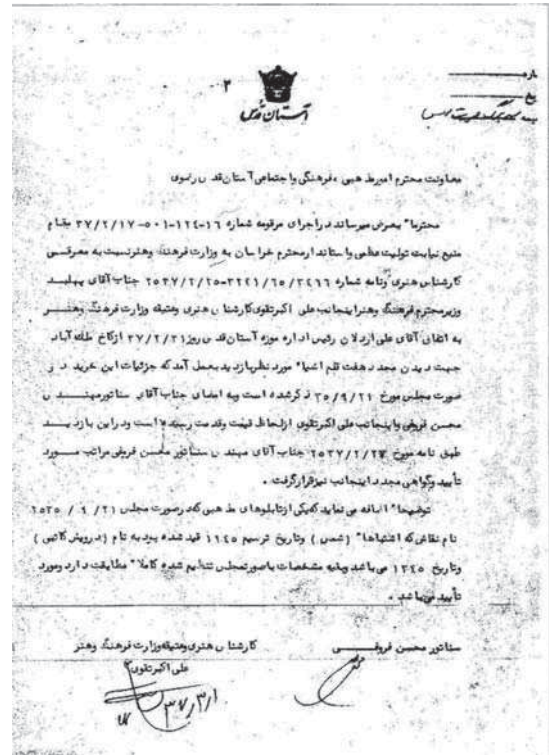 ۲
آستان قدس
معاونت محترم امور مذهبی ، فرهنگی واجتماعی آستان قدس رضوی
محترما" بعرض میرساند در اجرای مرقومه شماره ۱۶-۱۲۴-۱-۵۰۰-۳۷/۲/۱۷ مقام
منیع نیابت تولیت عظمی واستاندار محترم خراسان به وزارت فرهنگ وهنر نسبت به معرفی
کارشناس هنری ونامه شماره ۲۵۳۷/۲/۲۵-۳۲۴۱/۶۵/۳۴۱۶ جناب آقای پهلبد
وزیر محترم فرهنگ وهنر اینجانب علی اکبر تقوی کارشناس هنری وعتیقه وزارت فرهنگ وهنر
به اتفاق آقای علی اردلان رئیس اداره موزه آستان قدس روز ۳۷/۲/۳۱ از کاخ ملک آباد
جهت دیدن مجدد هفت قلم اشیاء مورد نظر بازدید بعمل آمد که جزئیات این خرید در
صورت مجلس مورخ ۳۵/۹/۲۱ ذکر شده است وبه امضای جناب آقای سناتور مهندس
محسن فروغی واینجانب علی اکبر تقوی از لحاظ قیمت وقدمت رسیده است ودر این بازدید
طبق نامه مورخ ۲۵۳۷/۲/۲۷ جناب آقای مهندس سناتور محسن فروغی مراتب مورد
تأیید وگواهی مجدد اینجانب نیز قرار گرفت .
توضیحا" اضافه می نماید که یکی از تابلوهای مذهبی که در صورت مجلس ۲۱ / ۹ / ۲۵۳۵
نام نقاش که اشتباها" (شمس) وتاریخ ترسیم ۱۱۴۵ قید شده بود به نام (درویش کاتبی)
وتاریخ ۱۲۴۵ می باشد وبقیه مشخصات با صورتمجلس تنظیم شده کاملا" مطابقت دارد ومورد
تأیید می باشد .
سناتور محسن فروغی
کارشناس هنری وعتیقه وزارت فرهنگ وهنر
علی اکبر تقوی
۳۷/۳/۱